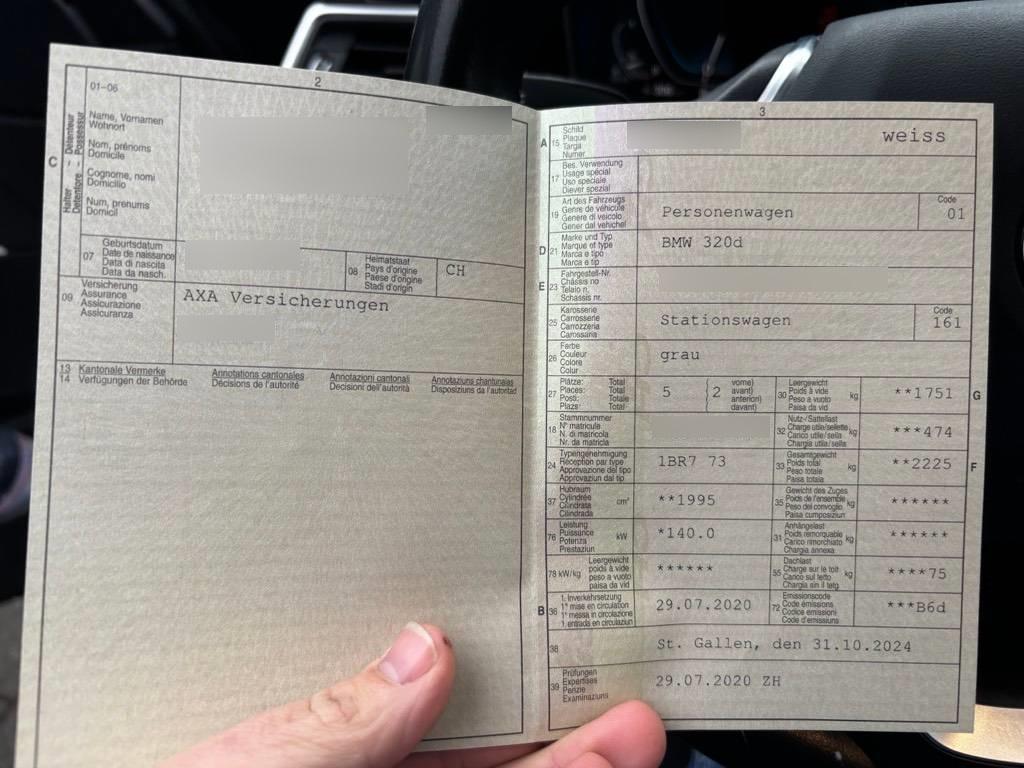 2
01-06
C
Halter - Détenteur
Detentore - Possessur
Name, Vornamen
Wohnort
Nom, prénoms
Domicile
Cognome, nomi
Domicilio
Num, prenums
Domicil
07
Geburtsdatum
Date de naissance
Data di nascita
Data da nasch.
08
Heimatstaat
Pays d'origine
Paese d'origine
Stadi d'origin
CH
09
Versicherung
Assurance
Assicurazione
Assicuranza
AXA Versicherungen
13 Kantonale Vermerke Annotations cantonales Annotazioni cantonali Annotaziuns chantunalas
14 Verfügungen der Behörde Décisions de l'autorité Decisioni dell'autorità Disposiziuns da l'autoritad
3
A 15
Schild
Plaque
Targa
Numer
weiss
17
Bes. Verwendung
Usage spécial
Uso speciale
Diever spezial
19
Art des Fahrzeugs
Genre de véhicule
Genere di veicolo
Gener dal vehichel
Personenwagen
Code
01
D 21
Marke und Typ
Marque et type
Marca e tipo
Marca e tip
BMW 320d
E 23
Fahrgestell-Nr.
Châssis no
Telaio n.
Schassis nr.
25
Karosserie
Carrosserie
Carrozzeria
Carossaria
Stationswagen
Code
161
26
Farbe
Couleur
Colore
Colur
grau
27
Plätze: Total
Places: Total
Posti: Totale
Plazs: Total
5
2
vorne)
avant)
anteriori)
davant)
30
Leergewicht
Poids à vide
Peso a vuoto
Paisa da vid
kg
**1751
G
18
Stammnummer
N° matricule
N. di matricola
Nr. da matricla
32
Nutz-/Sattellast
Charge utile/sellette
Carico utile/sella
Chargia utila/sella
kg
***474
24
Typengenehmigung
Réception par type
Approvazione del tipo
Approvaziun dal tip
1BR7 73
33
Gesamtgewicht
Poids total
Peso totale
Paisa totala
kg
**2225
F
37
Hubraum
Cylindrée
Cilindrata
Cilindrada
cm³
**1995
35
Gewicht des Zuges
Poids de l'ensemble
Peso del convoglio
Paisa cumposiziun
kg
******
76
Leistung
Puissance
Potenza
Prestaziun
kW
*140.0
31
Anhängelast
Poids remorquable
Carico rimorchiato
Chargia annexa
kg
******
78 kW/kg
Leergewicht
poids à vide
peso a vuoto
paisa da vid
******
55
Dachlast
Charge sur le toit
Carico sul tetto
Chargia sin il tetg
kg
****75
B 36
1. Inverkehrsetzung
1re mise en circulation
1a messa in circolazione
1. entrada en circulaziun
29.07.2020
72
Emissionscode
Code émissions
Codice emissioni
Code d'emissiuns
***B6d
38
St. Gallen, den 31.10.2024
39
Prüfungen
Expertises
Perizie
Examinaziuns
29.07.2020 ZH